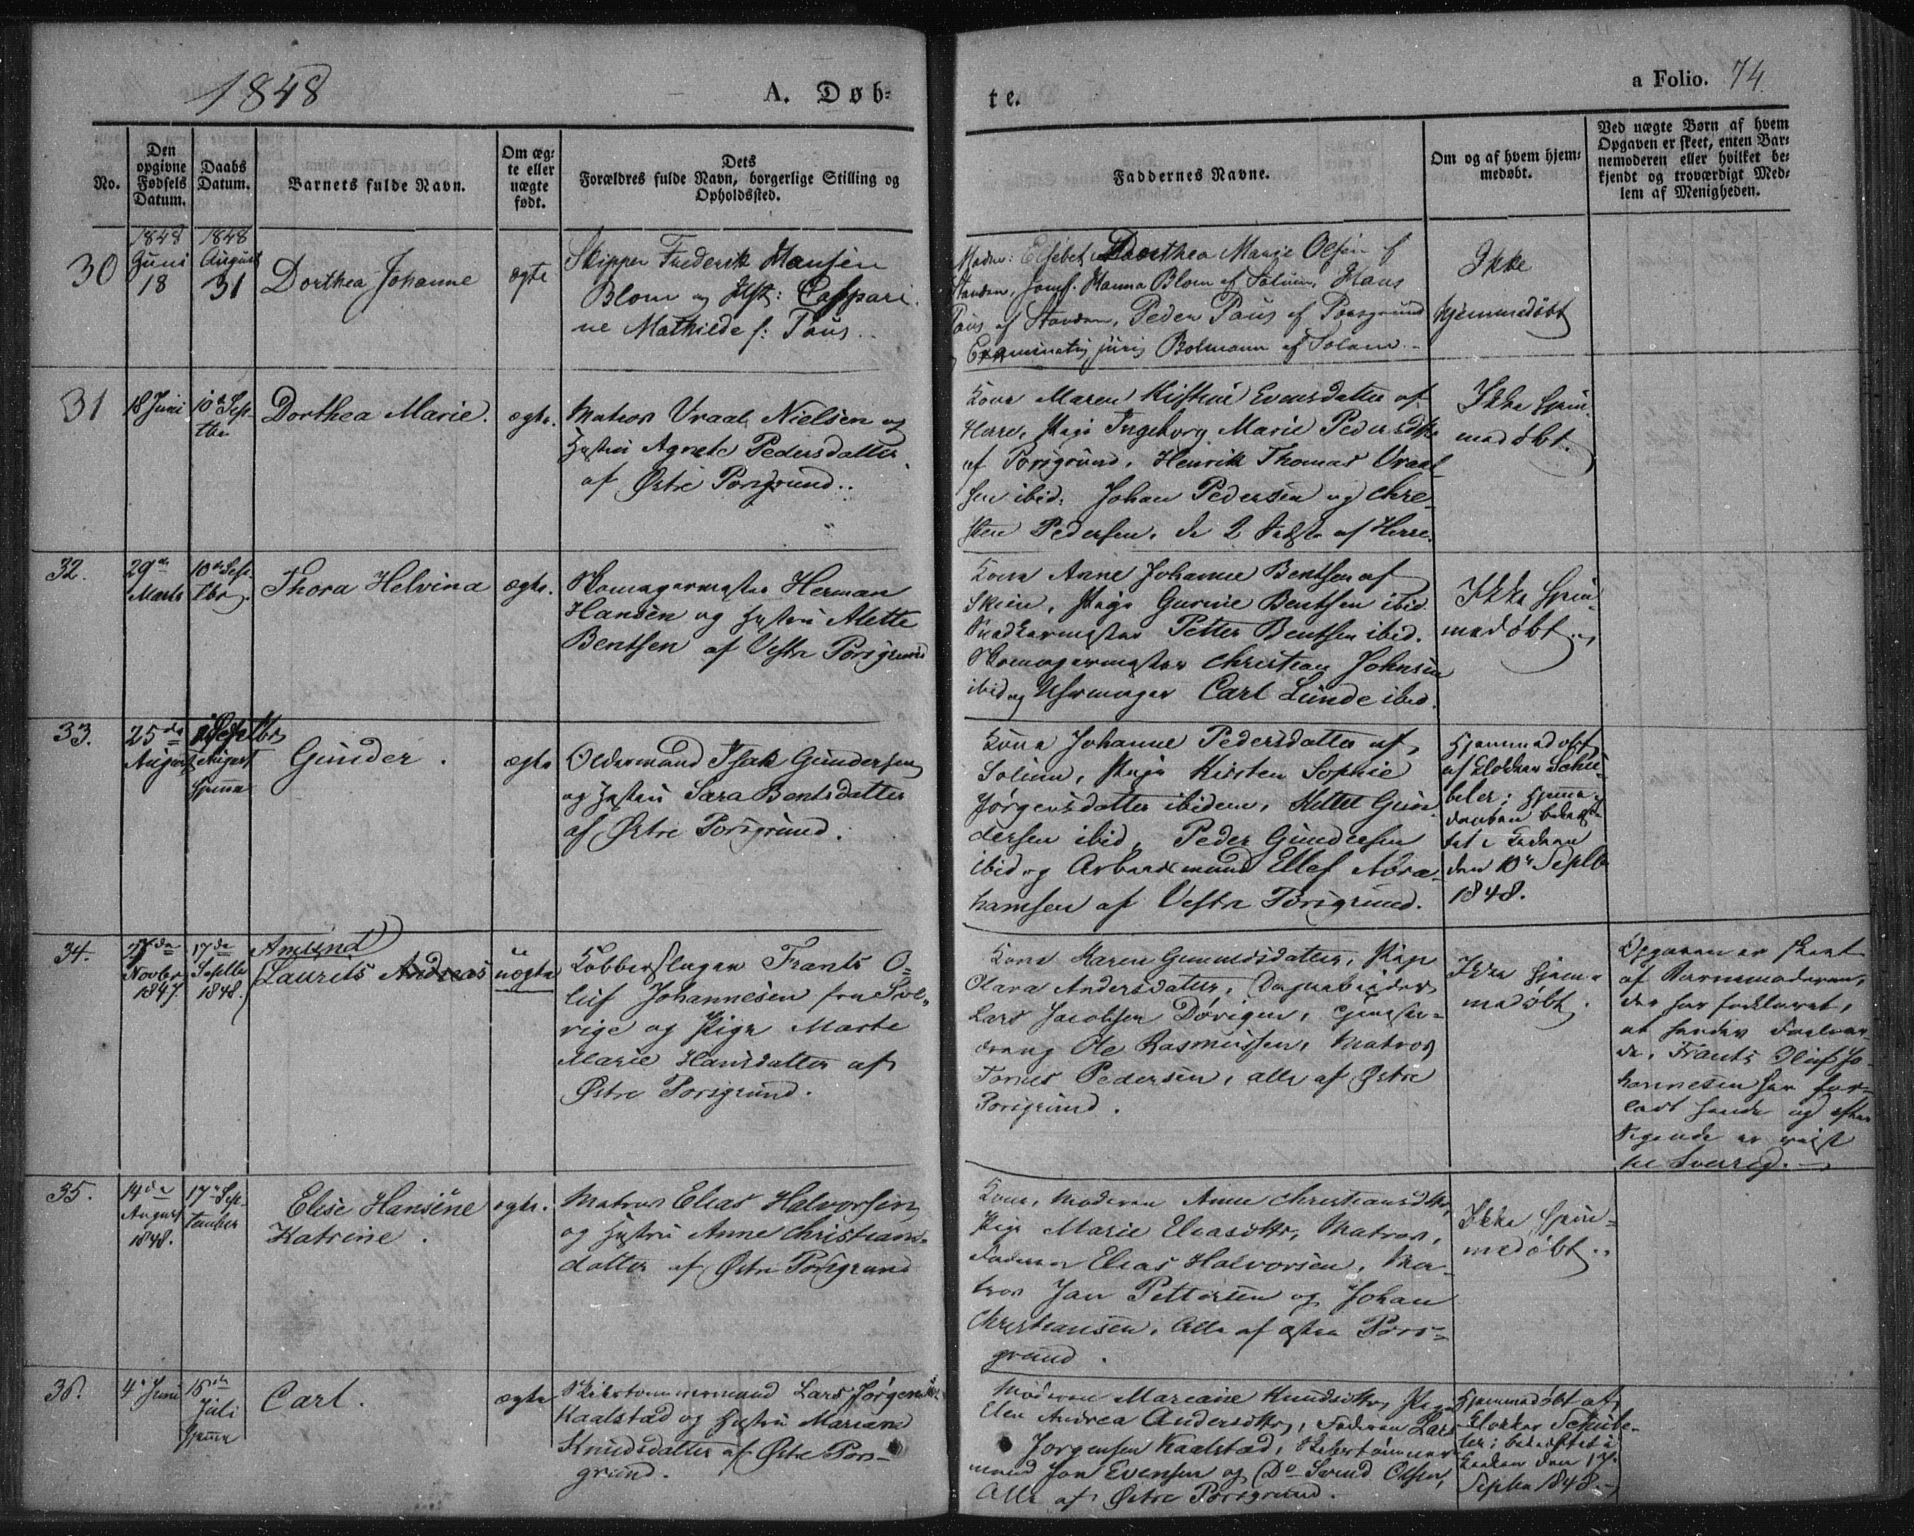 1848
A. Døb-
te.
a Folio. 74
No.
Den opgivne Fødsels Datum.
Daabs Datum.
Barnets fulde Navn.
Om ægte eller uægte født.
Dets Forældres fulde Navn, borgerlige Stilling og Opholdssted.
Faddernes Navne.
Om og af hvem hjemmedøbt.
Ved uægte Børn af hvem Opgaven er skeet, enten Barnemoderen eller hvilket bekjendt og troværdigt Medlem af Menigheden.
30
1848
Juni
18
1848
August
31
Dorthea Johanne
ægte
Skipper Frederik Hansen
Blom og Hst: Caspari
ne Mathilde f: Paus.
Madm: Elsebet Dorthea Marie Olsen f
Standm, Jomf. Hanna Blom af Solum, Hans
Paus af Standm, Peder Paus af Porsgrund
Examinatus juris Bolmann af Solum
Ikke
hjemmedøbt
31
18 Juni
10de Sept-
tbr
Dorthea Marie.
ægte.
Matros Vraal Nielsen og
Hustru Agnete Pedersdatter
af Østre Porsgrund.
Kone Maren Kistine Evensdatter af
Herre, Pige Ingeborg Marie Pedersdtr
af Porsgrund, Henrik Thomas Vraal
sen ibid: Johan Pedersen og Chre-
sten Pedersen, de 2 sidste af Herre.
Ikke hjem-
medøbt.
32.
29de
Marts
10de Sept
tbr.
Thora Helvina
ægte.
Skomagermester Herman
Hansen og Hustru Alette
Bentsen af Vestre Porsgrund
Kone Anne Johanne Bentsen af
Skien, Pige Gurine Bentsen ibid
Snedkermester Petter Bentsen ibid.
Skomagermester Christian Johnsen
ibid og Uhrmager Carl Lunde ibid.
Ikke hjem-
medøbt.
33.
25de
August
Septbr
August
hjemme
Gunder.
ægte
Oldermand Isak Gundersen
og Hustru Sara Bentsdatter
af Østre Porsgrund.
Kone Johanne Pedersdatter af
Solum, Pige Kirsten Sophie
Jørgensdatter ibidem, Kittel Gun
dersen ibid, Peder Gundersen
ibid og Arbeidsmand Ellef Abra-
hamsen af Vestre Porsgrund.
Hjemmedøbt
af Klokker Schu-
beler; hjemme-
daaben bekræf-
tet i Kirken
den 10de Septb
1848.
34.
Novbr
1847.
17de
Septbr
1848.
Amund
Laurits Andreas
uægte
Kobberslager Frants O-
luf Johannesen fra Sve-
rige og Pige Marte
Marie Hansdatter af
Østre Porsgrund.
Kone Karen Gunnersdatter, Pige
Olava Andersdatter, Dagarbeider
Lars Jacobsen Dørigen, Tjeneste-
dreng Ole Rasmussen, Matros
Tønnes Pedersen, alle af Østre
Porsgrund.
Ikke hjem-
medøbt.
Opgaven er skeet
af Barnemoderen,
der har forklaret,
at hendes Forlove-
de, Frants Oluf Jo-
hannesen har for-
ladt hende og efter
Sigende er reist
til Sverrig.
35.
14de
August
1848.
17de Sep-
tember
Elise Hansine
Katrine.
ægte.
Matros Elias Halvorsen
og Hustru Anne Christians-
datter af Østre Porsgrund
Kone, Moderen Anne Christiansdtr,
Pige Marie Eliasdtr, Matros,
Faderen Elias Halvorsen, Ma-
tros Jan Pettersen og Johan
Christiansen, Alle af østre Pors-
grund.
Ikke hjem-
medøbt.
36.
4. Juni
16de
Juli
hjemme
Carl.
ægte
Skibstømmermand Lars Jørgensen
Kaalstad og Hustru Mariane
Knudsdatter af Østre Pors-
grund.
Moderen Mariane Knudsdtr, Pige
Elen Andrea Andersdtr, Faderen Lars
Jørgensen Kaalstad, Skibstømmer-
mand Jon Evensen og Do Svend Olsen,
Alle af Østre Porsgrund.
Hjemmedøbt af
Klokker Schube-
ler; bekræftet i
Kirken den 17.
Septbr 1848.